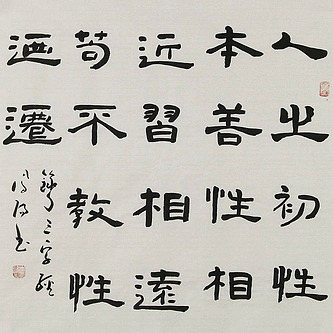 人之初性
本善性相
近習相遠
苟不教性
迺遷
三字經